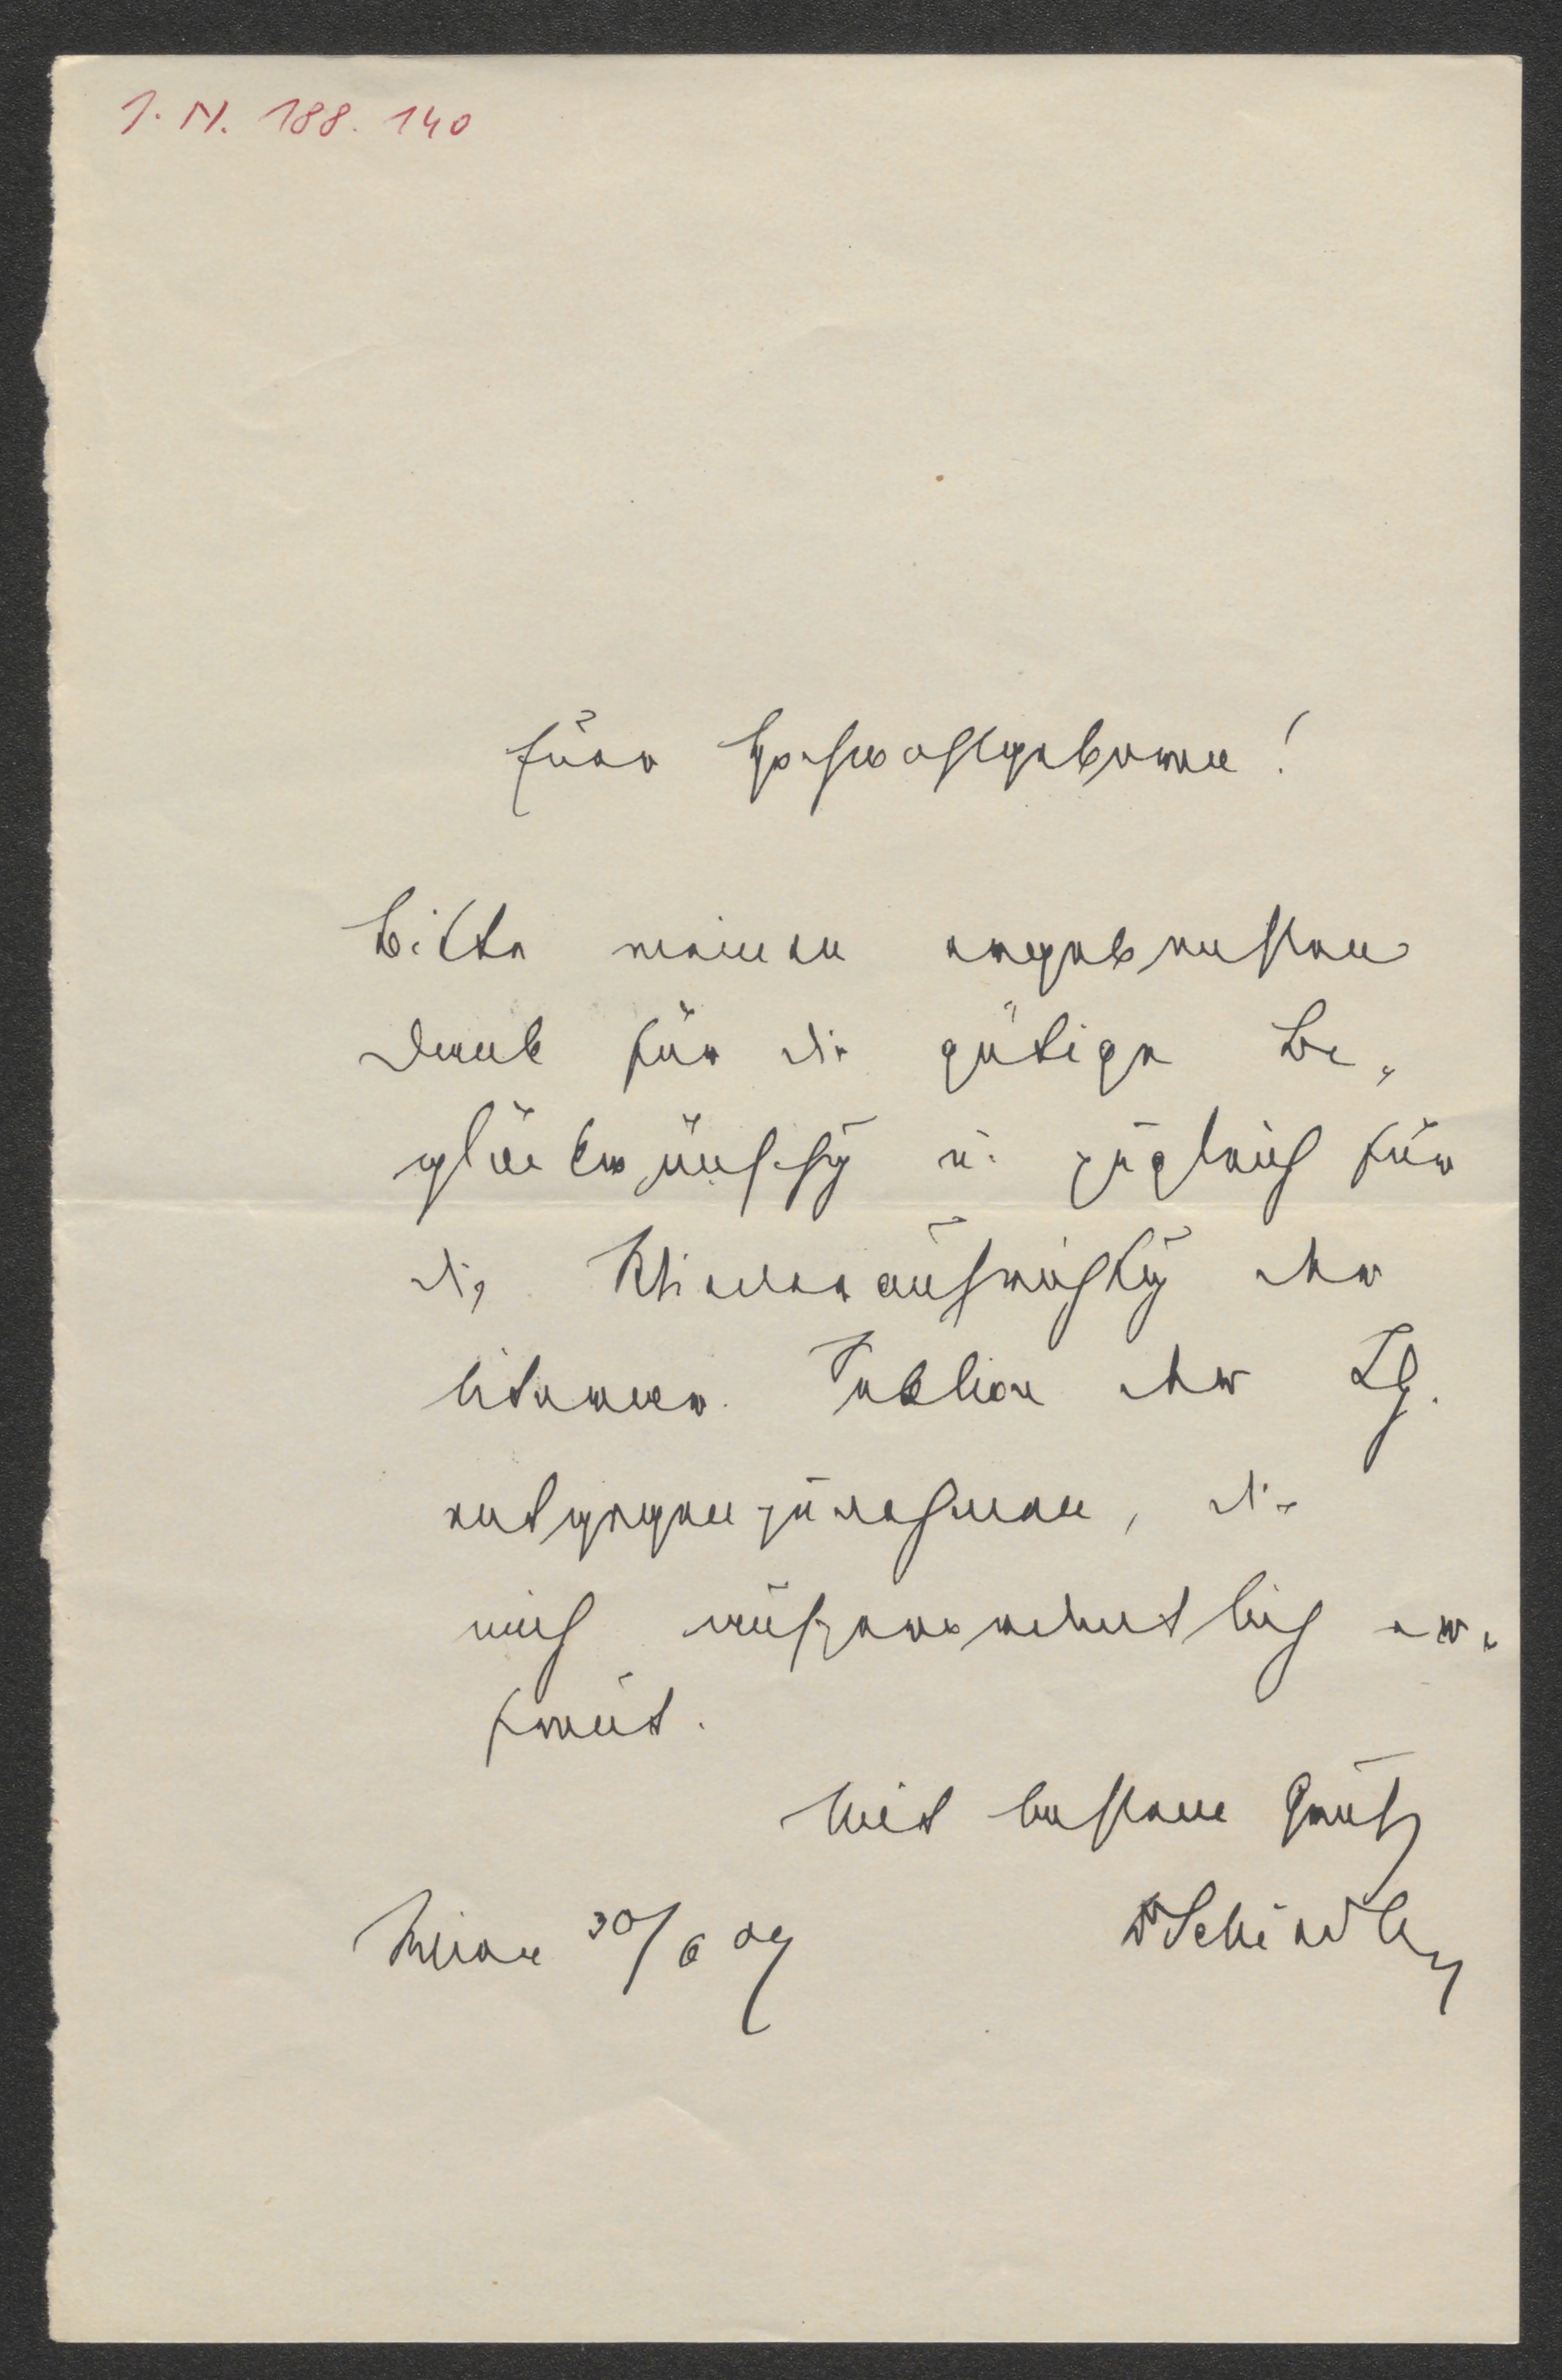 J. N. 188.140
Euer Hochwohlgeboren!
Bitte meinen ergebensten
Dank für die gütige Be„
glückwünschg u. zugleich für
die
literar. Sektion der LG.
entgegenzunehmen, die
mich außerordentlich er„
freut.
Mit bestem Gruß
Wien 30/6 09
Dr Schindler